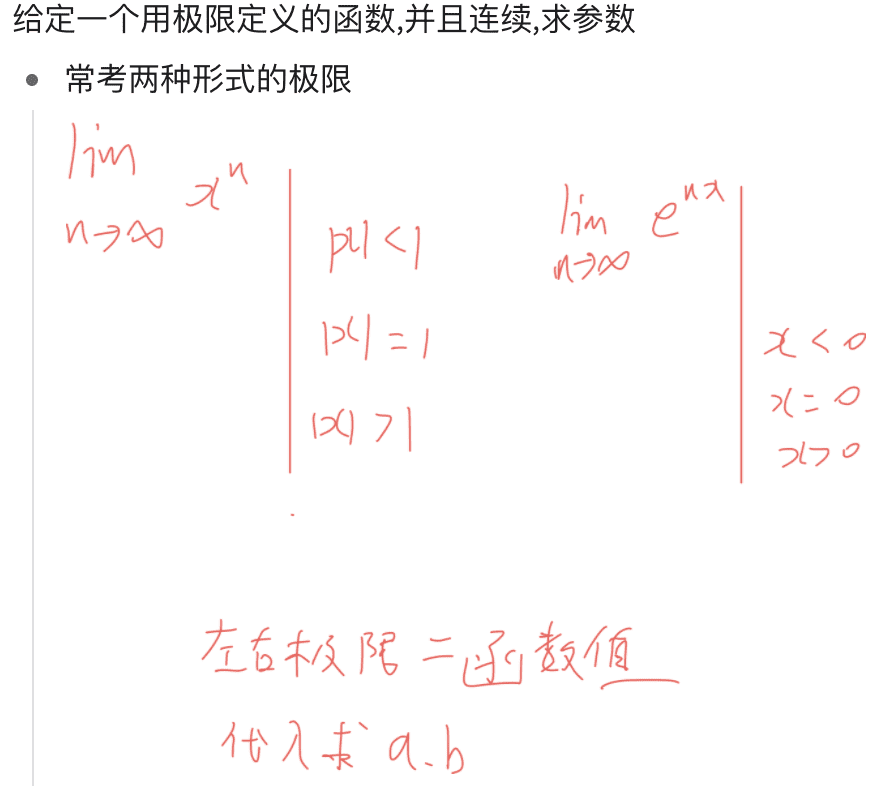 给定一个用极限定义的函数,并且连续,求参数
常考两种形式的极限
lim n→∞ x^n
|x| < 1
|x| = 1
|x| > 1
lim n→∞ e^{nx}
x < 0
x = 0
x > 0
左右极限 = 函数值
代入求 a.b